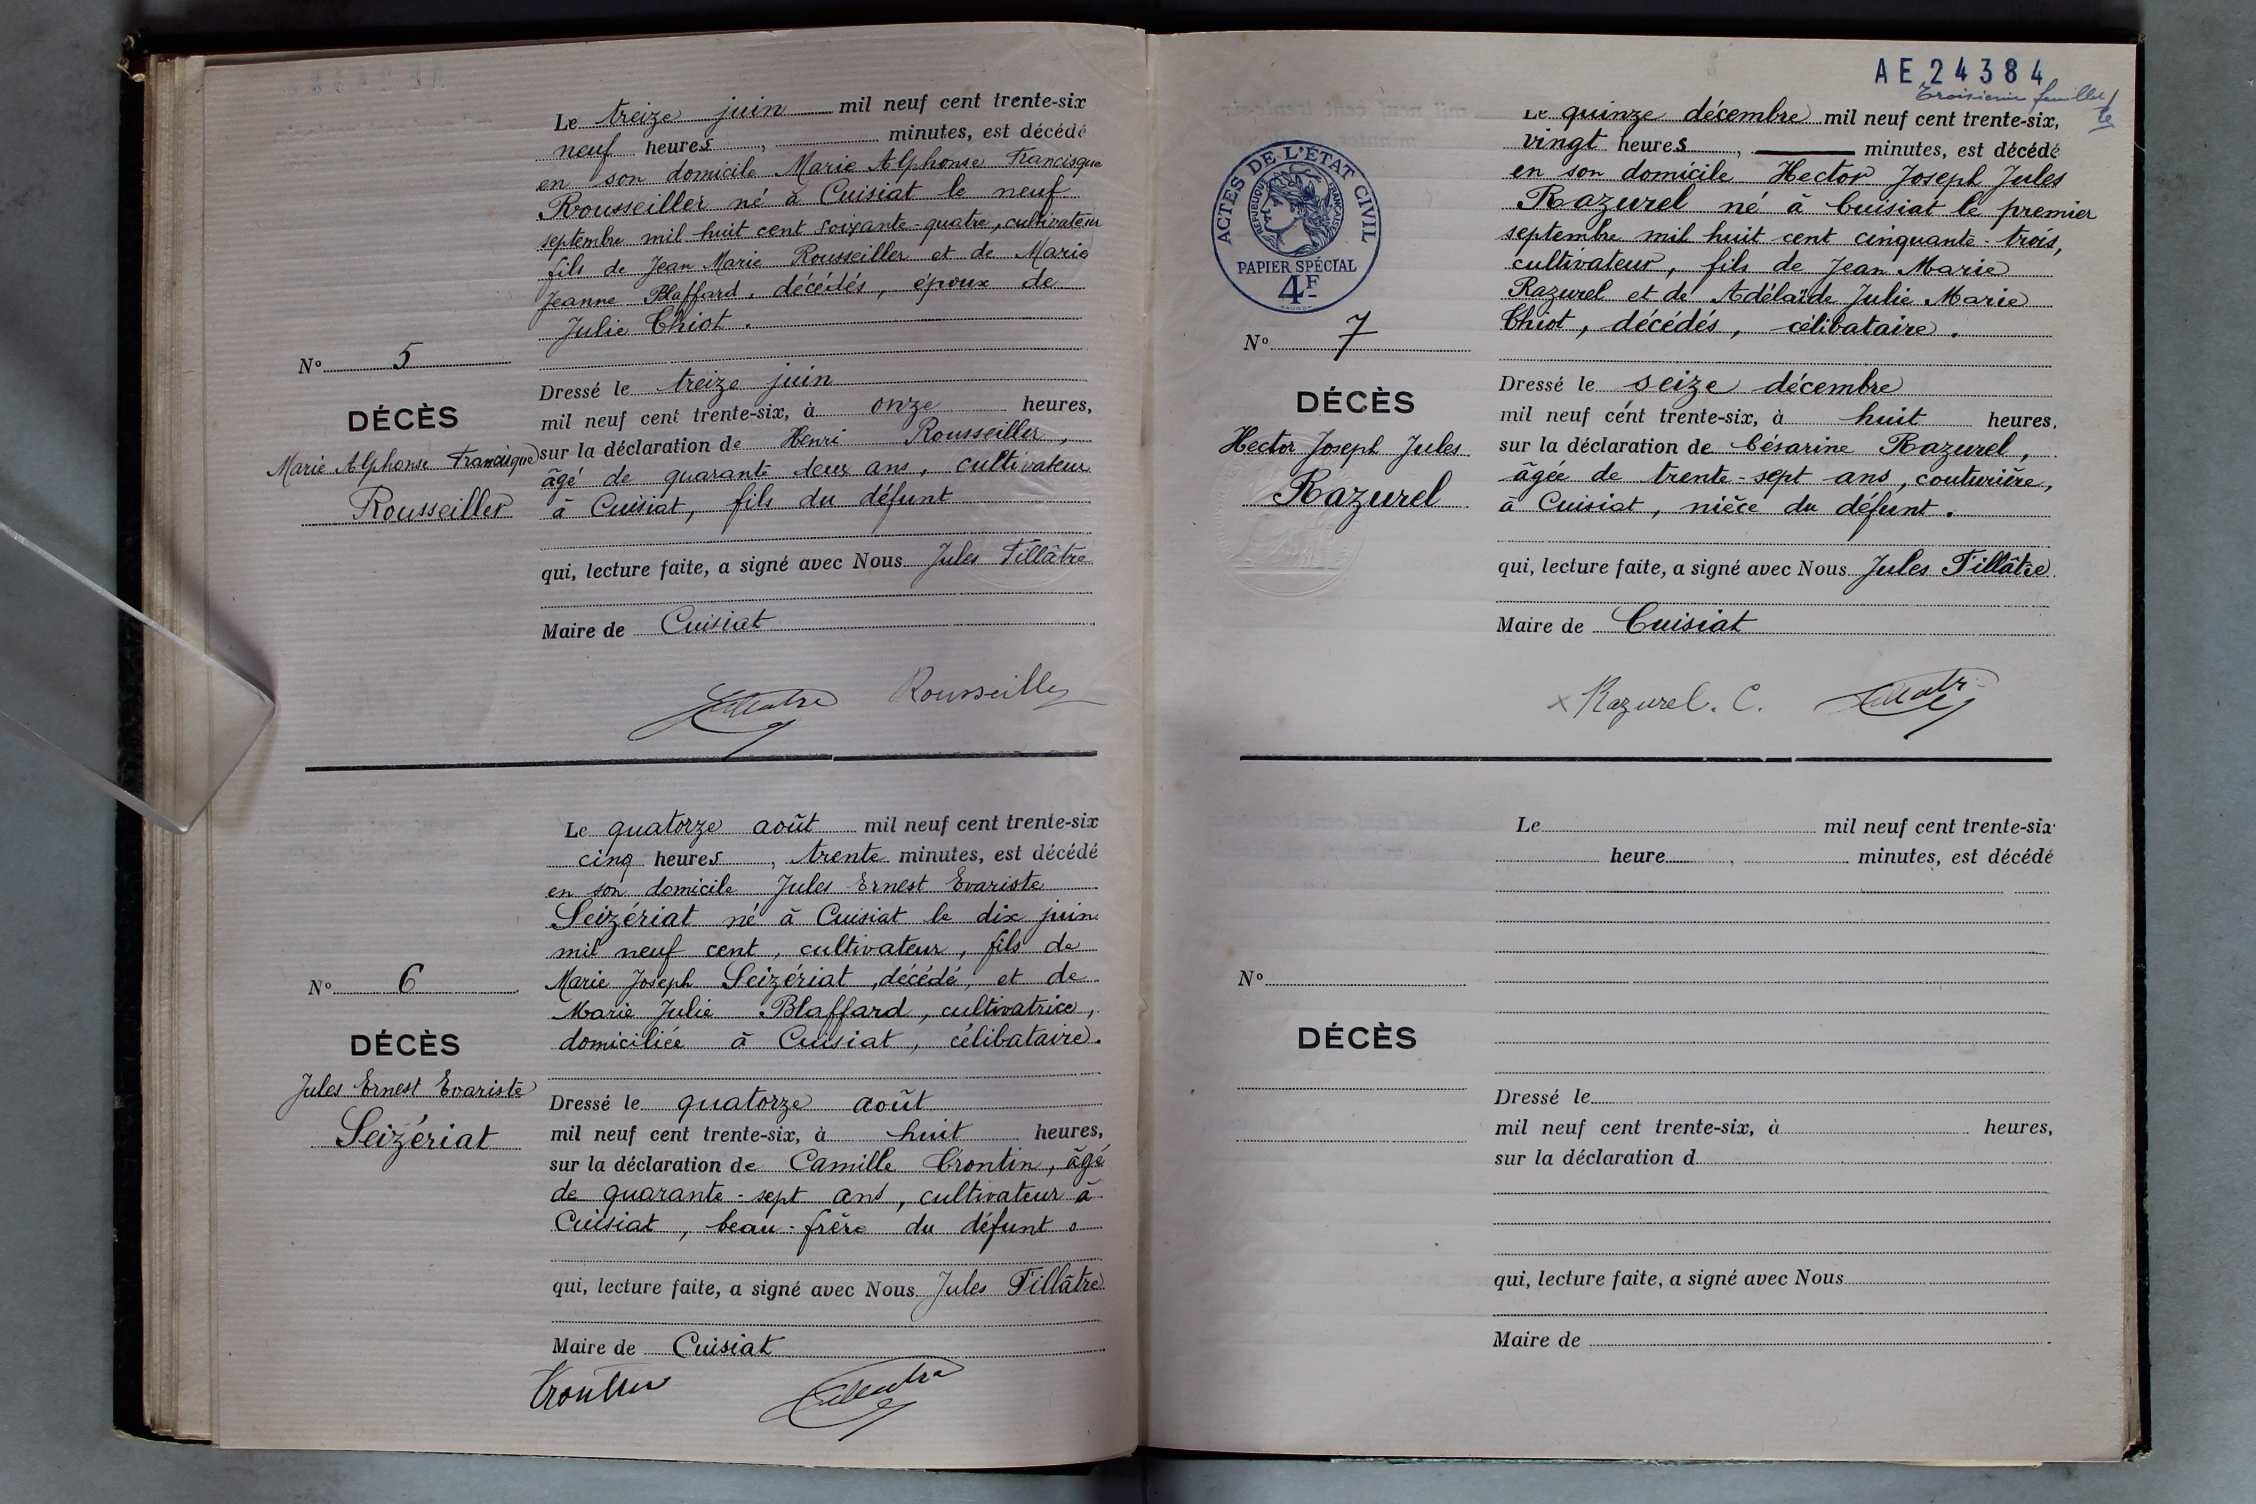 Le treize juin mil neuf cent trente-six
neuf heures, minutes, est décédé
en son domicile Marie Alphonse Francisque
Rousseiller né à Cuisiat le neuf
septembre mil huit cent soixante-quatre, cultivateur
fils de Jean Marie Rousseiller et de Marie
Jeanne Blaffard, décédés, époux de
Julie Chiot.
N° 5
DÉCÈS
Marie Alphonse Francisque
Rousseiller
Dressé le treize juin
mil neuf cent trente-six, à onze heures,
sur la déclaration de Henri Rousseiller,
âgé de quarante deux ans, cultivateur
à Cuisiat, fils du défunt
qui, lecture faite, a signé avec Nous Jules Tillâtre
Maire de Cuisiat
Tillatre Rousseiller
Le quatorze août mil neuf cent trente-six
cinq heures, trente minutes, est décédé
en son domicile Jules Ernest Evariste
Seizériat né à Cuisiat le dix juin
mil neuf cent, cultivateur, fils de
Marie Joseph Seizériat, décédé, et de
Marie Julie Blaffard, cultivatrice,
domiciliée à Cuisiat, célibataire.
N° 6
DÉCÈS
Jules Ernest Evariste
Seizériat
Dressé le quatorze août
mil neuf cent trente-six, à huit heures,
sur la déclaration de Camille Crontin, âgé
de quarante-sept ans, cultivateur à
Cuisiat, beau-frère du défunt.
qui, lecture faite, a signé avec Nous Jules Tillâtre
Maire de Cuisiat
Tillatre
AE 24384
Troisième feuillet
Le quinze décembre mil neuf cent trente-six,
vingt heures, minutes, est décédé
en son domicile Hector Joseph Jules
Razurel né à Cuisiat le premier
septembre mil huit cent cinquante-trois,
cultivateur, fils de Jean Marie
Razurel et de Adélaïde Julie Marie
Chiot, décédés, célibataire.
ACTES DE L'ÉTAT CIVIL
REPUBLIQUE FRANÇAISE
PAPIER SPÉCIAL
4F
N° 7
DÉCÈS
Hector Joseph Jules
Razurel
Dressé le seize décembre
mil neuf cent trente-six, à huit heures,
sur la déclaration de Césarine Razurel,
âgée de trente-sept ans, couturière,
à Cuisiat, nièce du défunt.
qui, lecture faite, a signé avec Nous Jules Tillâtre
Maire de Cuisiat
x Razurel. C. Tillatre
Le mil neuf cent trente-six
heure, minutes, est décédé
N°
DÉCÈS
Dressé le
mil neuf cent trente-six, à heures,
sur la déclaration d
qui, lecture faite, a signé avec Nous
Maire de